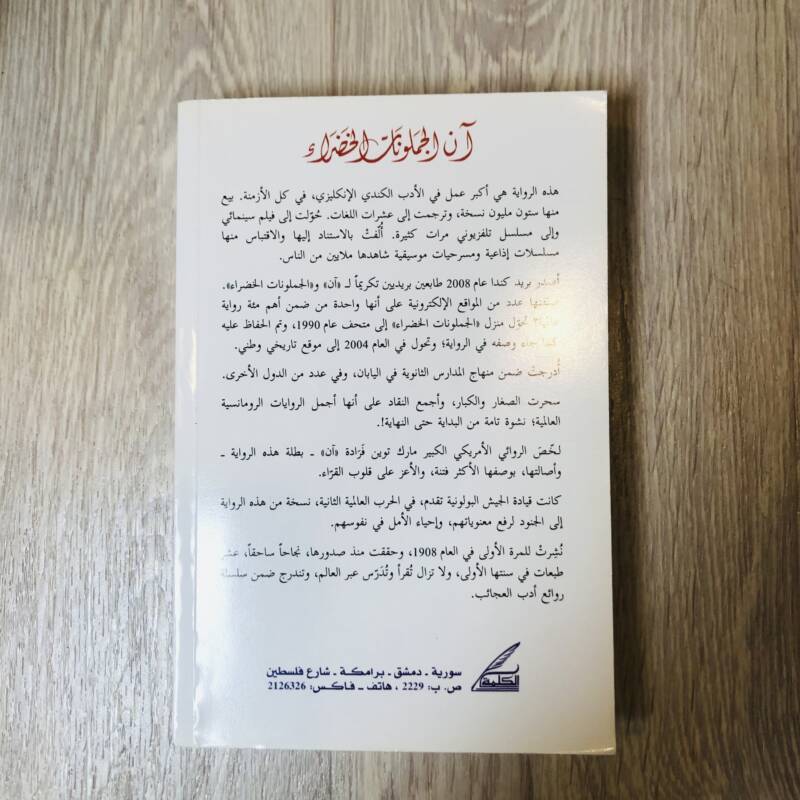 آن الجملونات الخضراء
هذه الرواية هي أكبر عمل في الأدب الكندي الإنكليزي، في كل الأزمنة. بيع
منها ستون مليون نسخة، وترجمت إلى عشرات اللغات. حُوّلت إلى فيلم سينمائي
وإلى مسلسل تلفزيوني مرات كثيرة. أُلّفتْ بالاستناد إليها والاقتباس منها
مسلسلات إذاعية ومسرحيات موسيقية شاهدها ملايين من الناس.
أصدر بريد كندا عام 2008 طابعين بريديين تكريماً لـ «آن» و«الجملونات الخضراء».
صنفتها عدد من المواقع الإلكترونية على أنها واحدة من ضمن أهم مئة رواية
تحوّل منزل «الجملونات الخضراء» إلى متحف عام 1990، وتم الحفاظ عليه
كما جاء وصفه في الرواية؛ وتحول في العام 2004 إلى موقع تاريخي وطني.
أُدرجتْ ضمن منهاج المدارس الثانوية في اليابان، وفي عدد من الدول الأخرى.
سحرت الصغار والكبار، وأجمع النقاد على أنها أجمل الروايات الرومانسية
العالمية؛ نشوة تامة من البداية حتى النهاية!.
لخّصَ الروائي الأمريكي الكبير مارك توين فَرَادة «آن» ـ بطلة هذه الرواية ـ
وأصالتها، بوصفها الأكثر فتنة، والأعز على قلوب القرّاء.
كانت قيادة الجيش البولونية تقدم، في الحرب العالمية الثانية، نسخة من هذه الرواية
إلى الجنود لرفع معنوياتهم، وإحياء الأمل في نفوسهم.
نُشِرتْ للمرة الأولى في العام 1908، وحققت منذ صدورها، نجاحاً ساحقاً، عشر
طبعات في سنتها الأولى، ولا تزال تُقرأ وتُدَرّس عبر العالم، وتندرج ضمن سلسلة
روائع أدب العجائب.
الكلمة
سورية ـ دمشق ـ برامكة ـ شارع فلسطين
ص. ب: 2229 ، هاتف ـ فاكس: 2126326